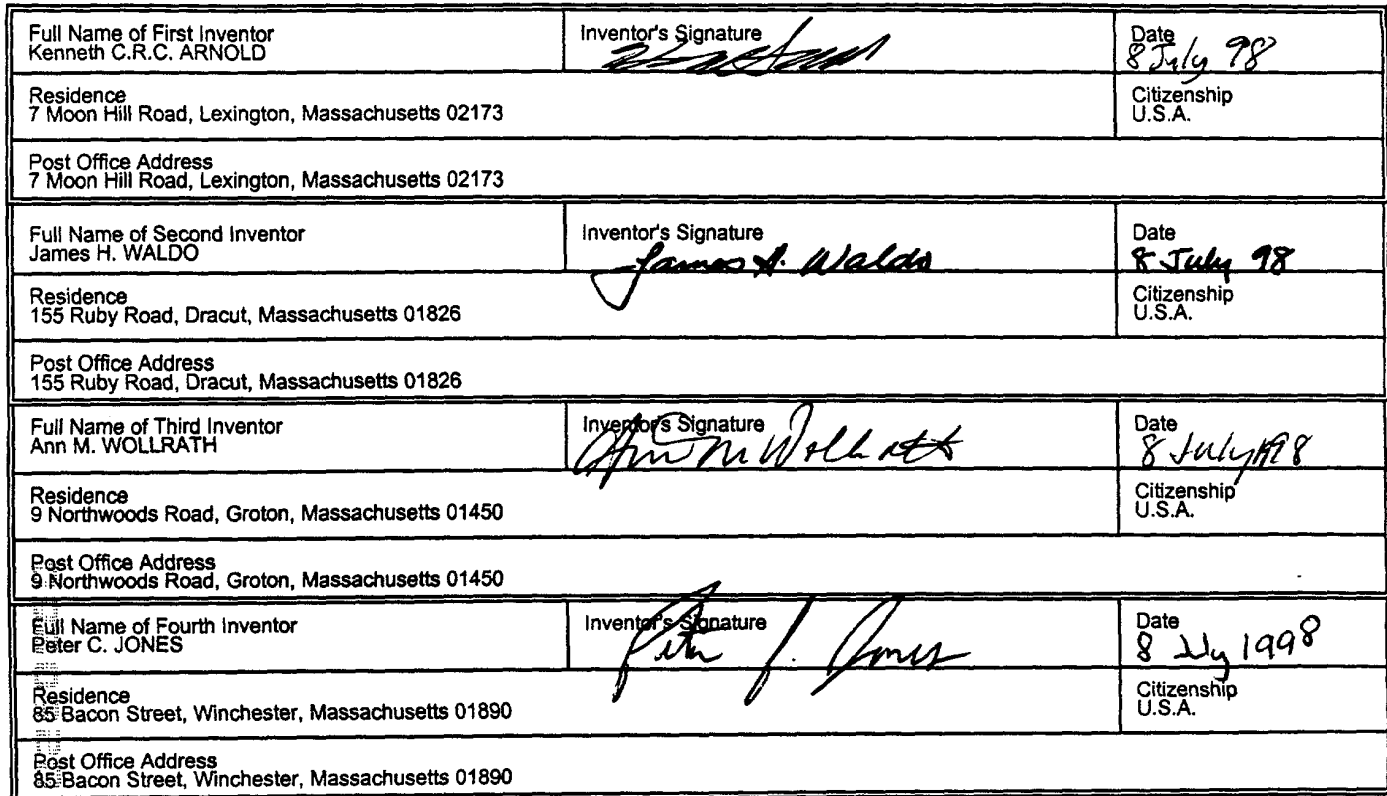 Full Name of First Inventor
Kenneth C.R.C. ARNOLD
Inventor's Signature
Date
8 July 98
Residence
7 Moon Hill Road, Lexington, Massachusetts 02173
Citizenship
U.S.A.
Post Office Address
7 Moon Hill Road, Lexington, Massachusetts 02173
Full Name of Second Inventor
James H. WALDO
Inventor's Signature
James H. Waldo
Date
8 July 98
Residence
155 Ruby Road, Dracut, Massachusetts 01826
Citizenship
U.S.A.
Post Office Address
155 Ruby Road, Dracut, Massachusetts 01826
Full Name of Third Inventor
Ann M. WOLLRATH
Inventor's Signature
Ann M Wollrath
Date
8 July 1998
Residence
9 Northwoods Road, Groton, Massachusetts 01450
Citizenship
U.S.A.
Post Office Address
9 Northwoods Road, Groton, Massachusetts 01450
Full Name of Fourth Inventor
Peter C. JONES
Inventor's Signature
Peter C. Jones
Date
8 July 1998
Residence
85 Bacon Street, Winchester, Massachusetts 01890
Citizenship
U.S.A.
Post Office Address
85 Bacon Street, Winchester, Massachusetts 01890